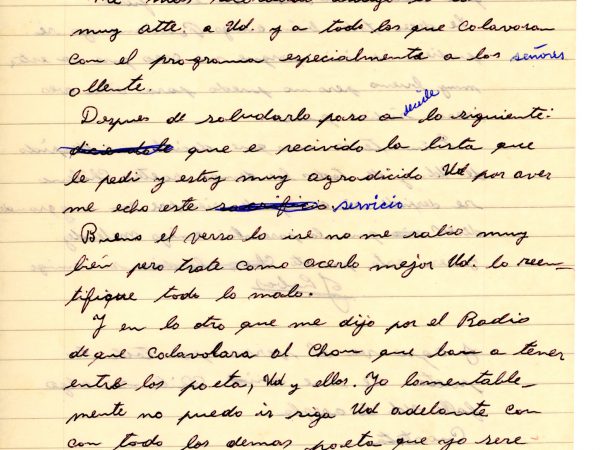 muy atte. a Ud y a todo los que colavoran
con el programa especialmente a los señores
ollente.
Despues de saludarlo paso a decirle lo siguiente:
diciendole que e recivido la lista que
le pedi y estoy muy agradicido Ud por aver
me echo este sacrificio servicio
Bueno el verso lo ise no me salio muy
bién pero trate como acerlo mejor Ud. lo reen-
tifique todo lo malo.
Y en lo otro que me dijo por el Radio
de que colavolara al Chou que ban a tener
entre los poeta, Ud y ellos. Yo lamentable-
mente no puedo ir siga Ud adelante con
con todo los demas poeta que yo sere